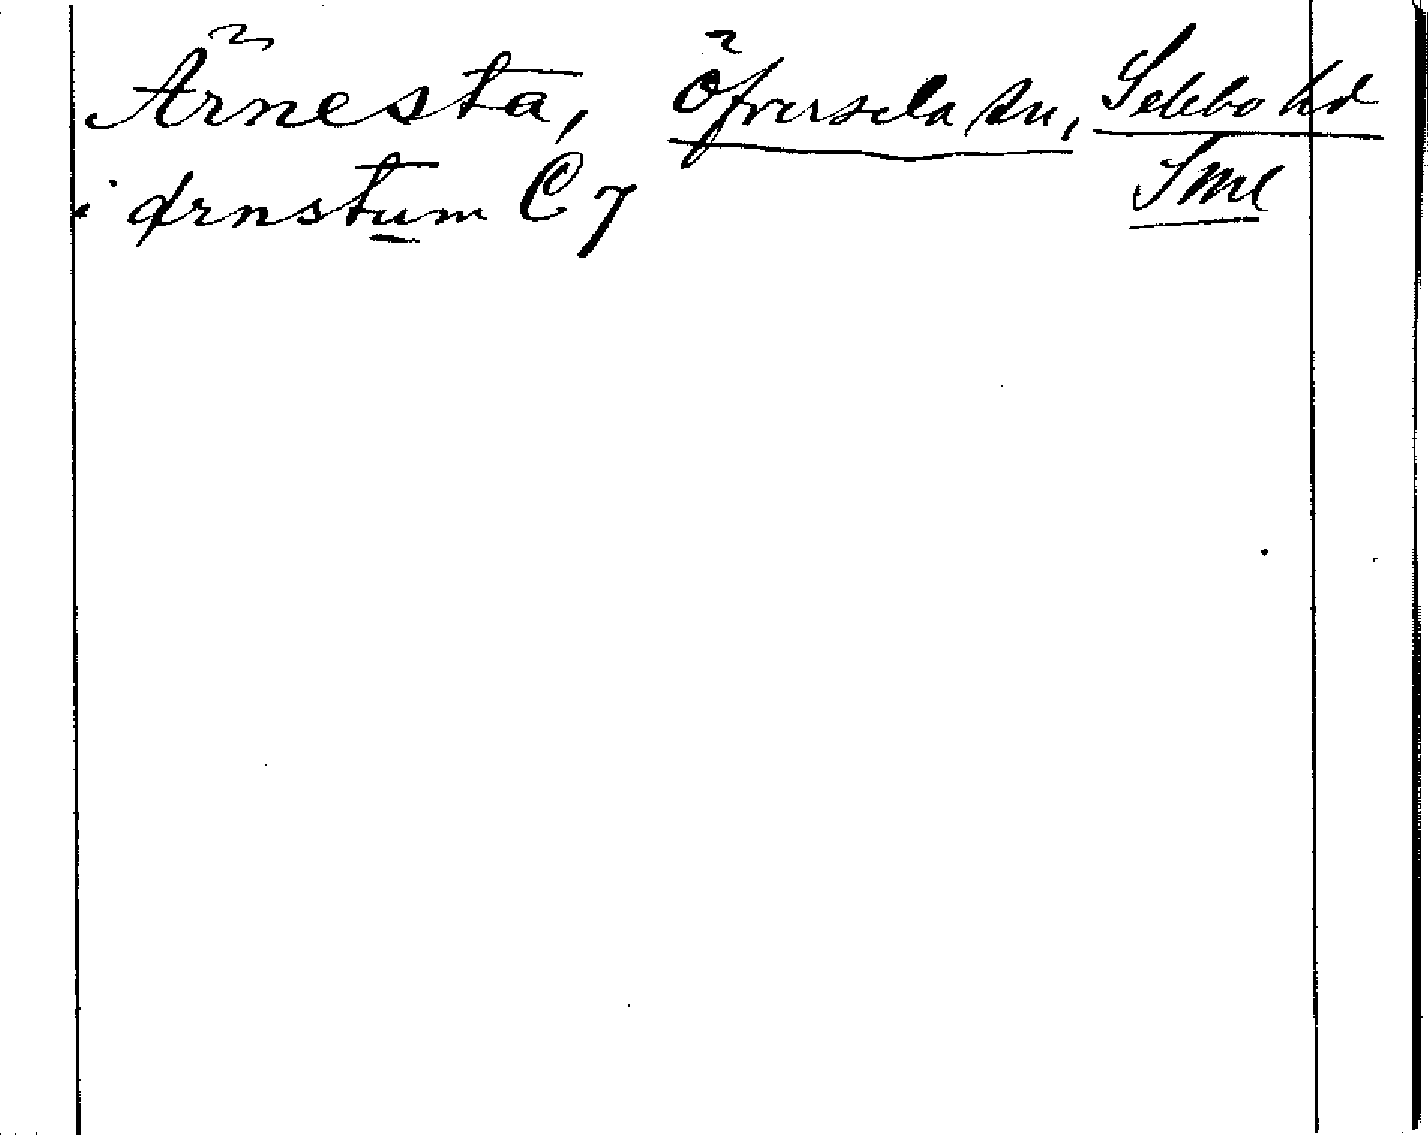 Ärnesta, Öfversela sn, Selebo hd
i ørnstum C 7 Sml